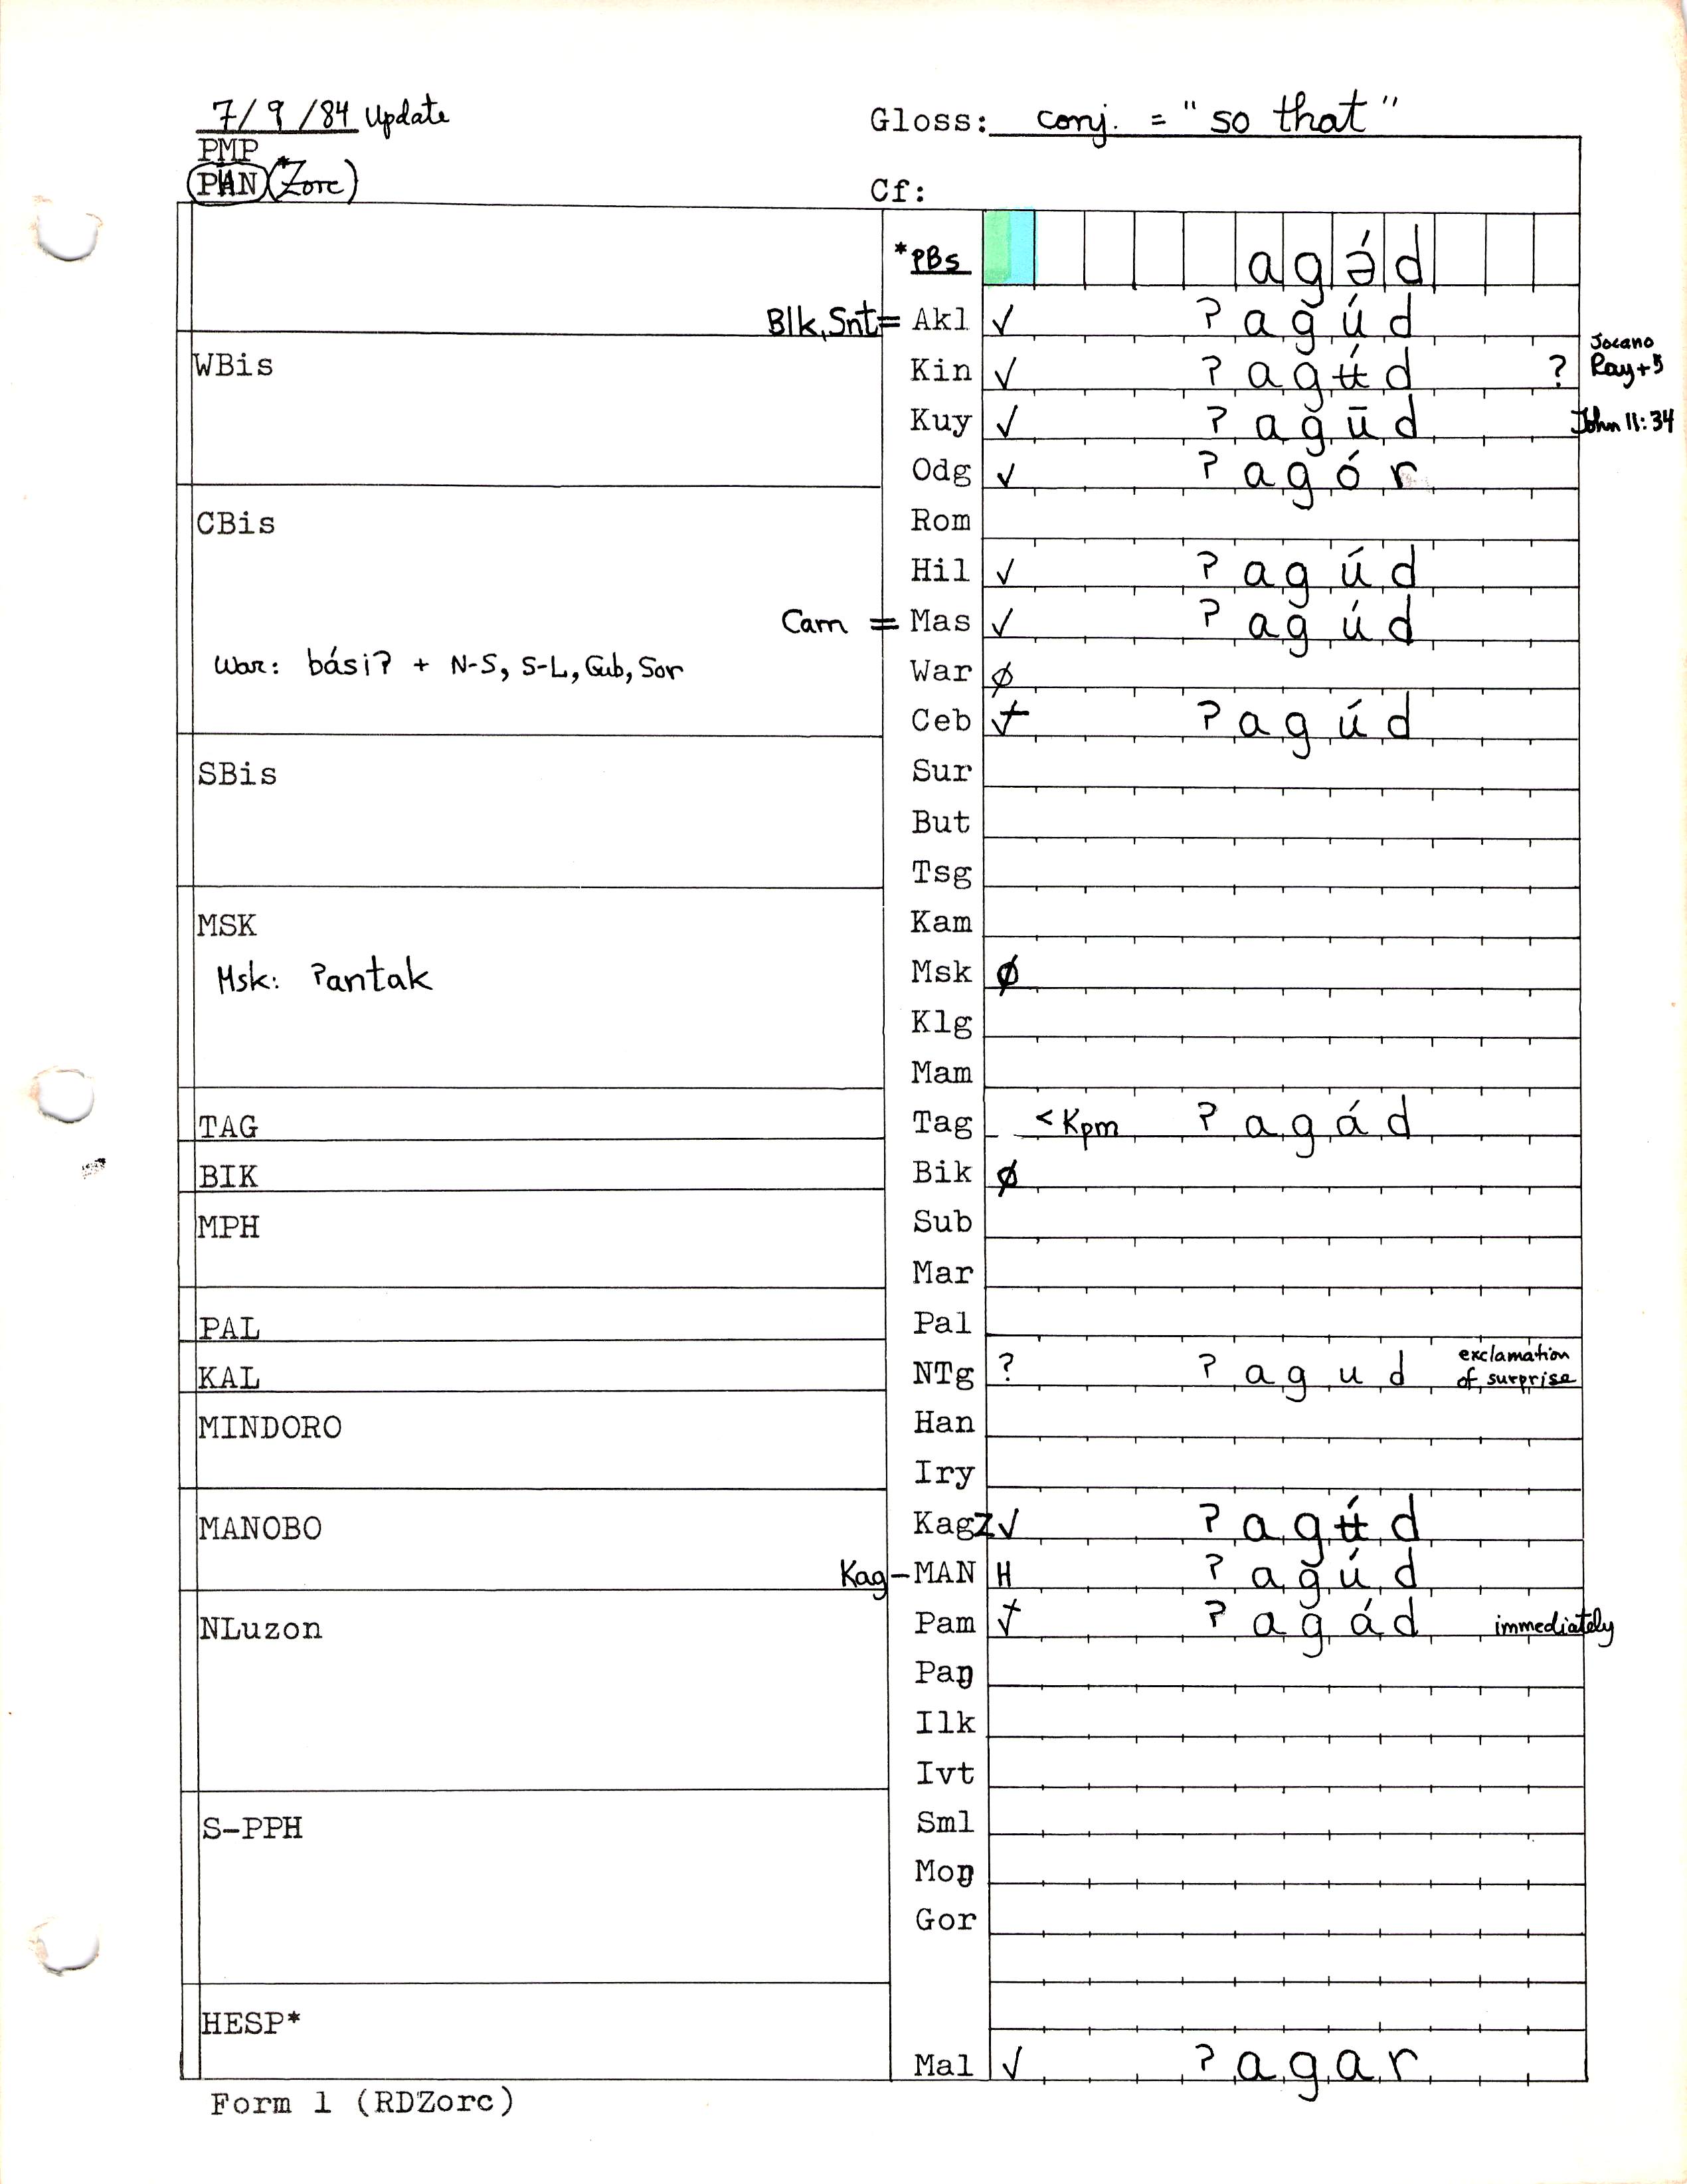 7/9/84 Update
Gloss: conj. = "so that"
PMP
PAN (*Zorc)
Cf:
*PBs agə́d
Blk, Snt = Akl √ ʔagúd
WBis
Kin √ ʔagʉ́d ? Jocano Ray+5
Kuy √ ʔagūd John 11:34
Odg √ ʔagór
CBis
Rom
Hil √ ʔagúd
Cam = Mas √ ʔagúd
War: básiʔ + N-S, S-L, Gub, Sor
War ∅
Ceb √+ ʔagúd
SBis
Sur
But
Tsg
MSK
Kam
Msk: ʔantak
Msk ∅
Klg
Mam
TAG
Tag < Kpm ʔagád
BIK
Bik ∅
MPH
Sub
Mar
PAL
Pal
KAL
NTg ? ʔagud exclamation of surprise
MINDORO
Han
Iry
MANOBO
KagZ √ ʔagʉ́d
Kag-MAN H ʔagúd
NLuzon
Pam √+ ʔagád immediately
Paŋ
Ilk
Ivt
S-PPH
Sml
Moŋ
Gor
HESP*
Mal √ ʔagar
Form 1 (RDZorc)